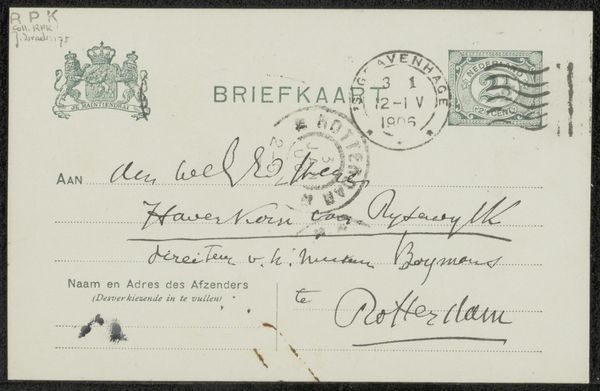 R P K
Coll. RPK
J. Israels 175
JE MAINTIENDRAI
BRIEFKAART
'S-GRAVENHAGE
3 1
12-1 V
1906
NEDERLAND
2½
CENT
ROTTERDAM
3
JAN
AAN den Wel Ed Heer
Haverkorn van Rijsewijk
directeur v. h. Museum Boymans
Naam en Adres des Afzenders
(Desverkiezende in te vullen)
te
Rotterdam